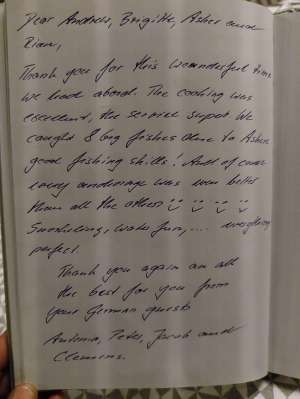 Dear Andreas, Brigitte, Asher and
Rian,
Thank you for this wounderful time
we had abord. The cooking was
excellent, the service superb. We
caught 8 big fishes due to Ashers
good fishing skills! And of course
every anchorage was even better
than all the others
Snorkeling, water fun, .... everything
perfect.
Thank you again an all
the best for you from
your German guests
Antonia, Peter, Jacob and
Clemens.